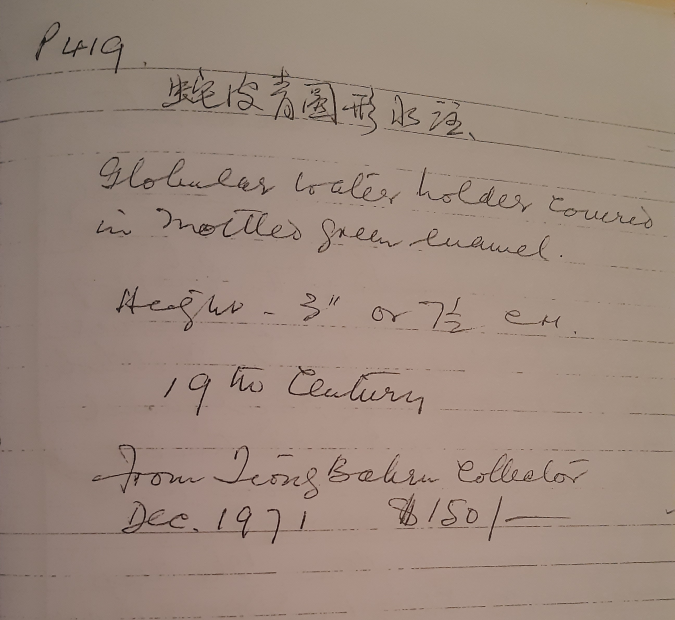 P419.
蛇皮青圓形水注、
Globular water holder covered
in mottled green enamel.
Height - 3" or 7½ cm.
19th Century
From Tiong Bahru Collector
Dec. 1971 $150/-